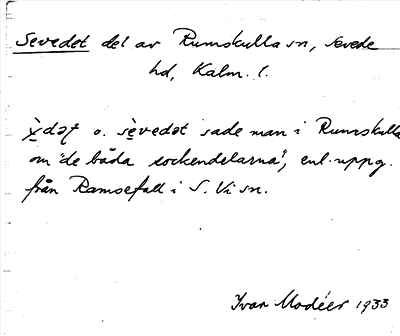 Sevedet del av Rumskulla sn, Sevede
hd, Kalm. l.
o. sèvedət sade man i Rumskulla
om "de båda sockendelarna", enl. uppg.
från Ramsefall i S. Vi sn.
Ivar Modéer 1933